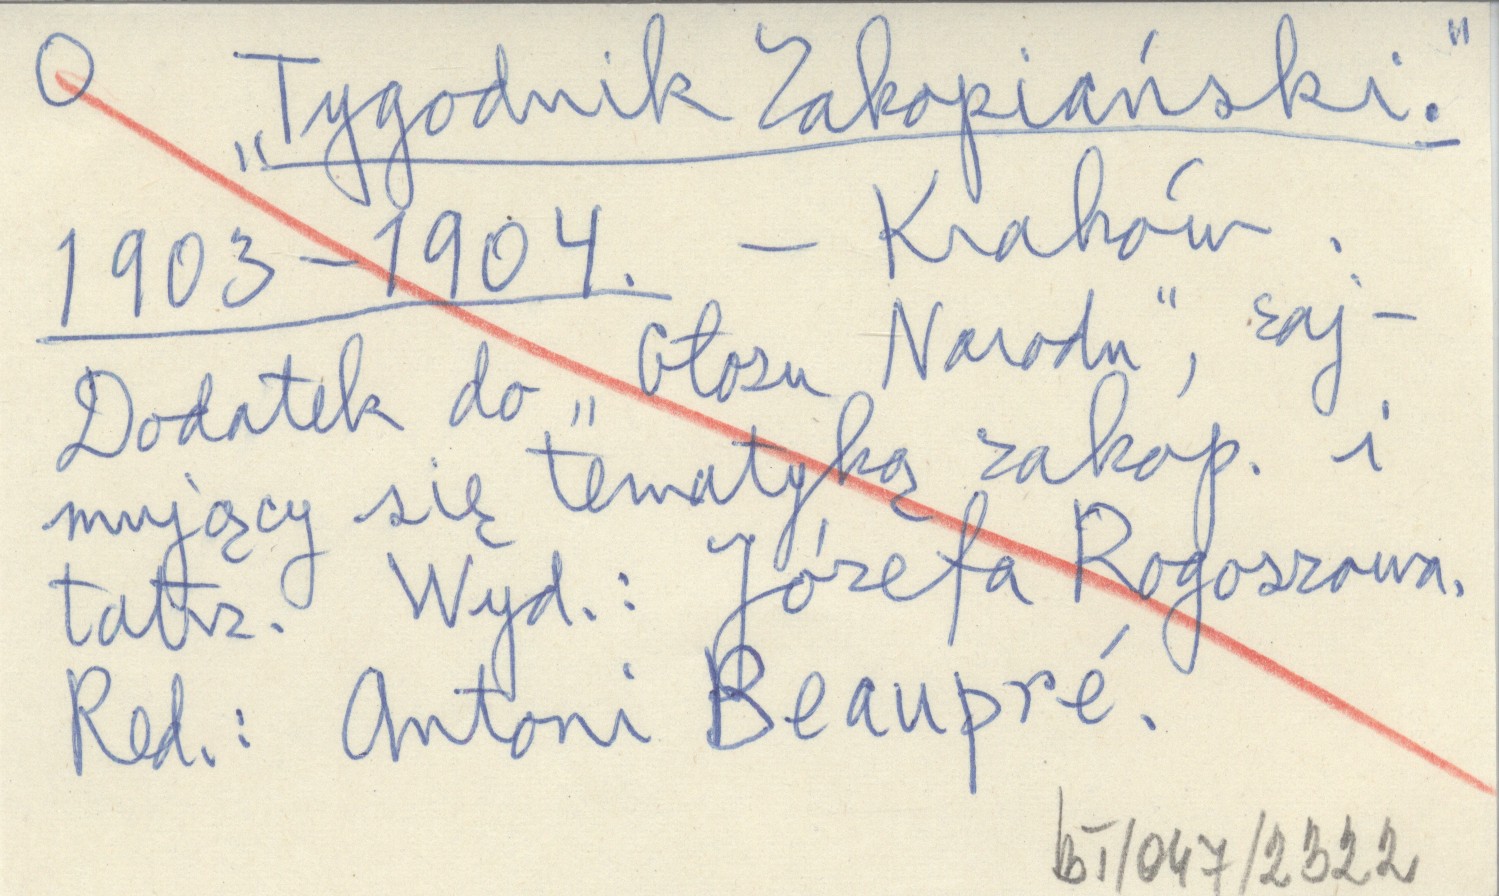 O „Tygodnik Zakopiański."
1903–1904. – Kraków.
Dodatek do „Głosu Narodu", zaj-
mujący się tematyką zakop. i
tatrz. Wyd.: Józefa Rogoszowa.
Red.: Antoni Beaupré.
bI/047/2322